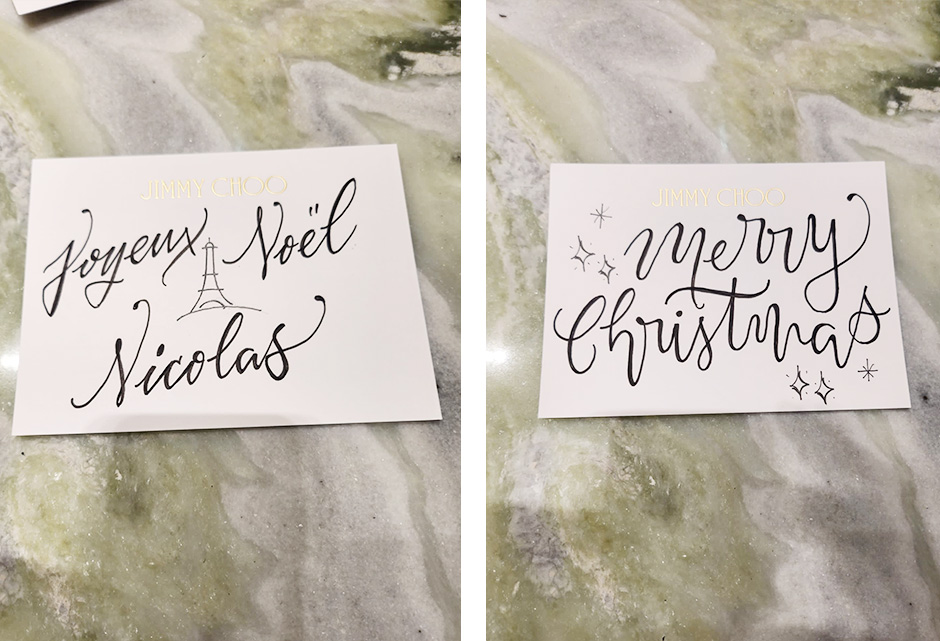 JIMMY CHOO
Joyeux Noël
Nicolas
JIMMY CHOO
merry
Christmas